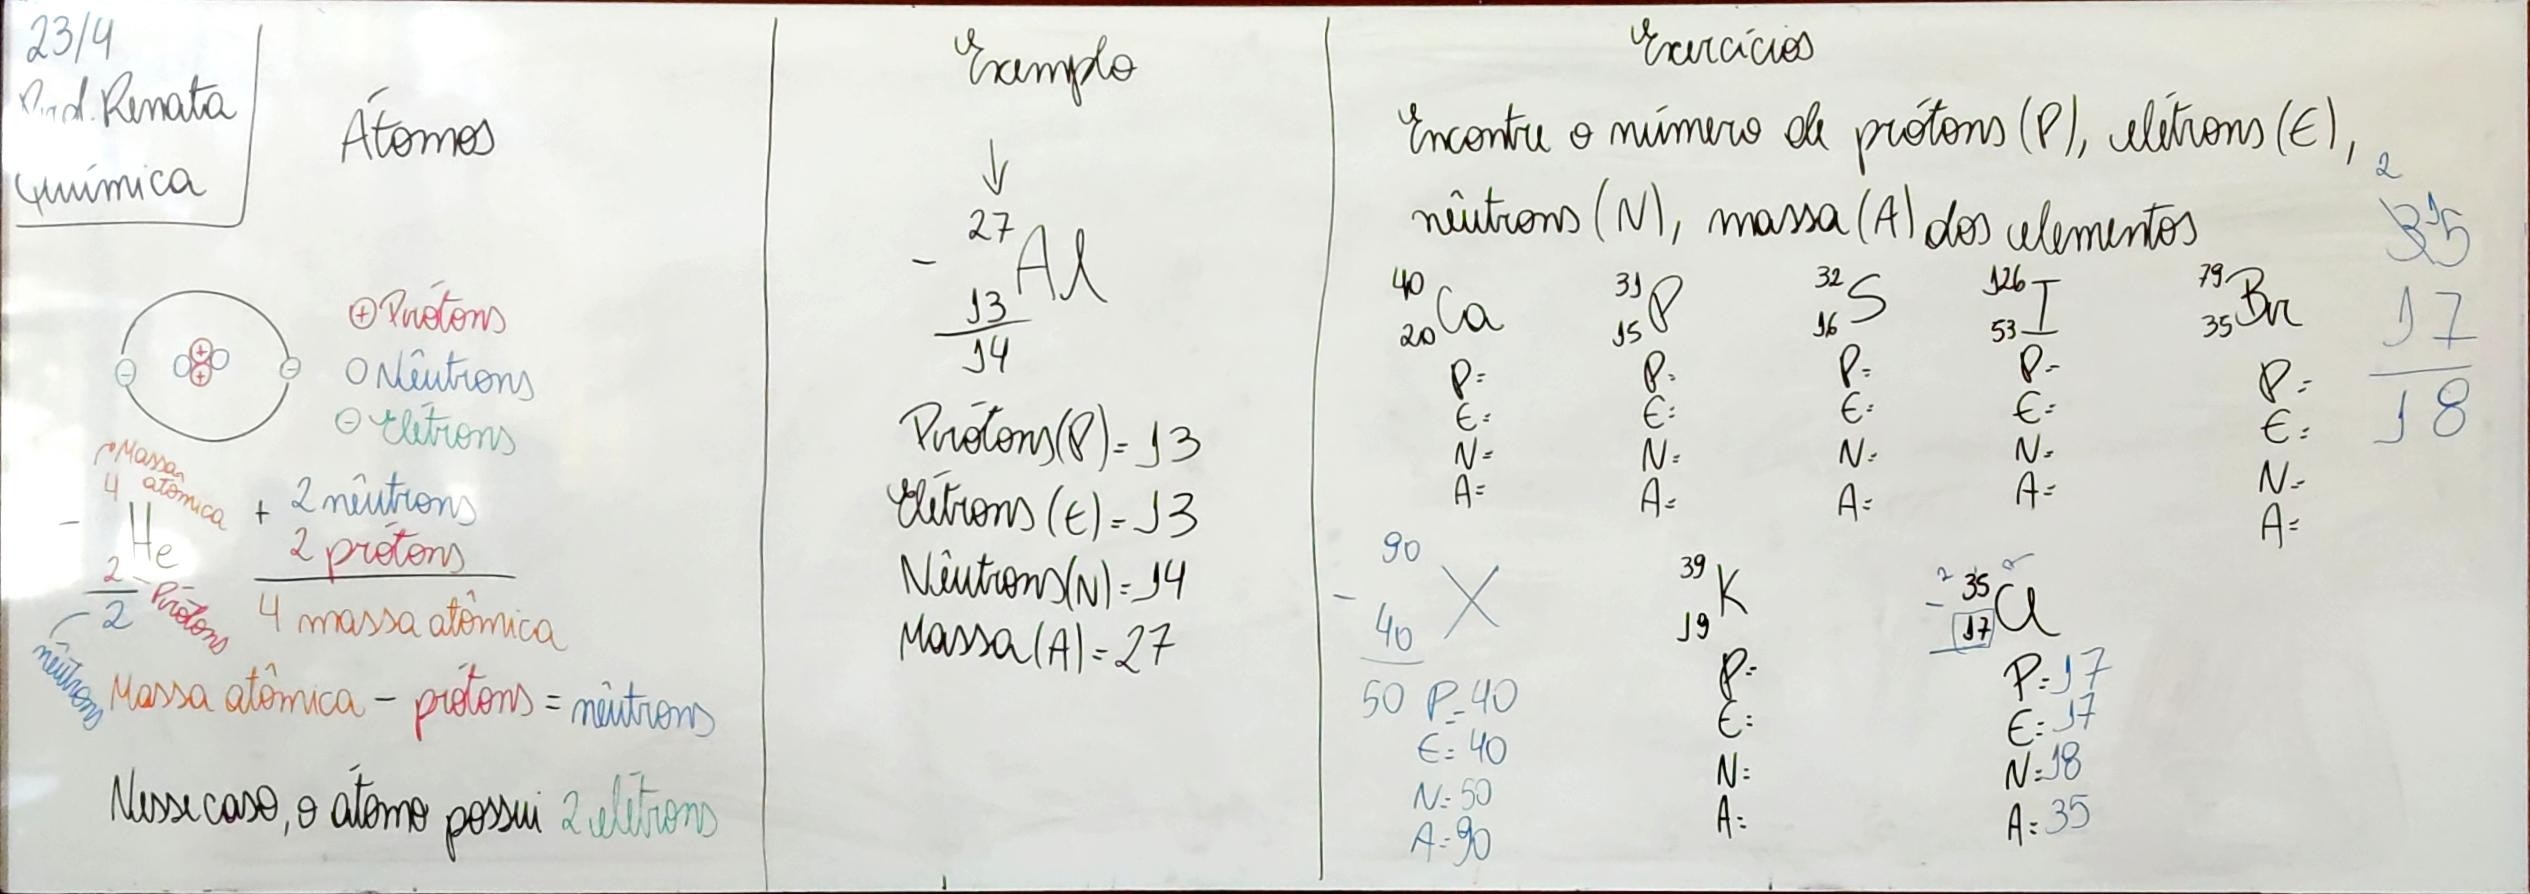 23/4
Prof. Renata
Química
Átomos
+ Prótons
Nêutrons
- Elétrons
Massa
atômica
4
- He
2
Prótons
2
nêutrons
+ 2 nêutrons
2 prótons
4 massa atômica
Massa atômica - prótons = nêutrons
Nesse caso, o átomo possui 2 elétrons
Exemplo
↓
27
- Al
13
14
Prótons(P)=13
Elétrons (E)=13
Nêutrons(N)=14
Massa(A)=27
Exercícios
Encontre o número de prótons(P), elétrons(E),
nêutrons (N), massa(A) dos elementos
40
Ca
20
P=
E=
N=
A=
31
P
15
P=
E=
N=
A=
32
S
16
P=
E=
N=
A=
126
I
53
P=
E=
N=
A=
79
Br
35
P=
E=
N=
A=
2
35
17
18
90
- X
40
50 P=40
E=40
N=50
A=90
39
K
19
P=
E=
N=
A=
2 35
- Cl
17
P=17
E=17
N=18
A=35